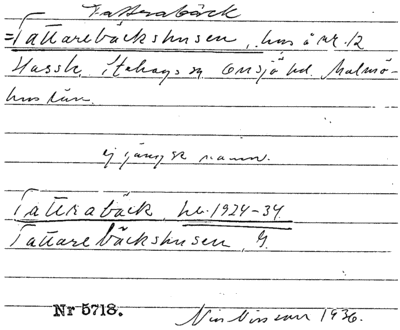 Tattrabäck
=Tattarebäckshusen, hus å nr. 12
Hassk, Stehags sn Onsjö hd. Malmö-
hus län.
ej gängse namn.
Tattrabäck, hl. 1924-34
Tattarebäckshusen, G.
Nr 5718.
Nils Nilsson 1936.